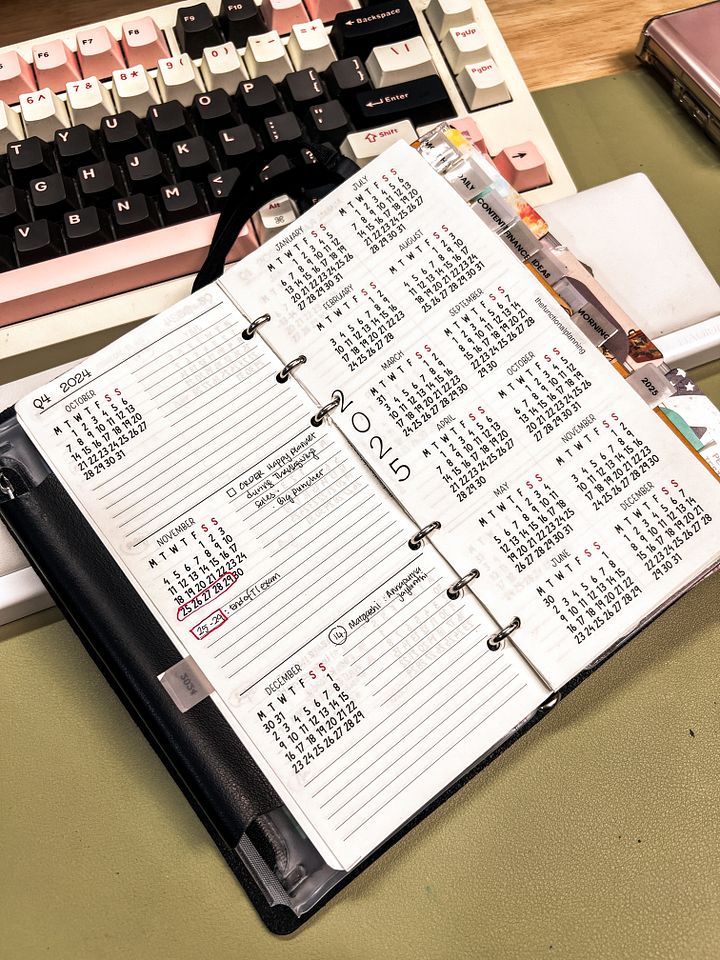 F9 F10
← Backspace
F6 F7 F8
6 ^ 7 & 8 * 9 ( 0 ) - _ = +
PgUp
PgDn
T Y U I O P { [ } ] | \
G H J K L ← Enter
V B N M ⇧ Shift
Alt
→
Q4 2024
OCTOBER
M T W T F S S
1 2 3 4 5 6
7 8 9 10 11 12 13
14 15 16 17 18 19 20
21 22 23 24 25 26 27
28 29 30 31
☐ ORDER Happy planner
during Thanksgiving
sales
Big puncher
NOVEMBER
M T W T F S S
1 2 3
4 5 6 7 8 9 10
11 12 13 14 15 16 17
18 19 20 21 22 23 24
25 26 27 28 29 30
25-29: End of T1 exam
14 Margazhi : Annapurna
Jayanthi
DECEMBER
M T W T F S S
30 31 1
2 3 4 5 6 7 8
9 10 11 12 13 14 15
16 17 18 19 20 21 22
23 24 25 26 27 28 29
2025
JANUARY
M T W T F S S
1 2 3 4 5
6 7 8 9 10 11 12
13 14 15 16 17 18 19
20 21 22 23 24 25 26
27 28 29 30 31
FEBRUARY
M T W T F S S
1 2
3 4 5 6 7 8 9
10 11 12 13 14 15 16
17 18 19 20 21 22 23
24 25 26 27 28
MARCH
M T W T F S S
31 1 2
3 4 5 6 7 8 9
10 11 12 13 14 15 16
17 18 19 20 21 22 23
24 25 26 27 28 29 30
APRIL
M T W T F S S
1 2 3 4 5 6
7 8 9 10 11 12 13
14 15 16 17 18 19 20
21 22 23 24 25 26 27
28 29 30
MAY
M T W T F S S
1 2 3 4
5 6 7 8 9 10 11
12 13 14 15 16 17 18
19 20 21 22 23 24 25
26 27 28 29 30 31
JUNE
M T W T F S S
30 1
2 3 4 5 6 7 8
9 10 11 12 13 14 15
16 17 18 19 20 21 22
23 24 25 26 27 28 29
JULY
M T W T F S S
1 2 3 4 5 6
7 8 9 10 11 12 13
14 15 16 17 18 19 20
21 22 23 24 25 26 27
28 29 30 31
AUGUST
M T W T F S S
1 2 3
4 5 6 7 8 9 10
11 12 13 14 15 16 17
18 19 20 21 22 23 24
25 26 27 28 29 30 31
SEPTEMBER
M T W T F S S
1 2 3 4 5 6 7
8 9 10 11 12 13 14
15 16 17 18 19 20 21
22 23 24 25 26 27 28
29 30
OCTOBER
M T W T F S S
1 2 3 4 5
6 7 8 9 10 11 12
13 14 15 16 17 18 19
20 21 22 23 24 25 26
27 28 29 30 31
NOVEMBER
M T W T F S S
1 2
3 4 5 6 7 8 9
10 11 12 13 14 15 16
17 18 19 20 21 22 23
24 25 26 27 28 29 30
DECEMBER
M T W T F S S
1 2 3 4 5 6 7
8 9 10 11 12 13 14
15 16 17 18 19 20 21
22 23 24 25 26 27 28
29 30 31
thefunctionalplanning
DAILY
CONTENT
FINANCE
IDEAS
MORNING
2025